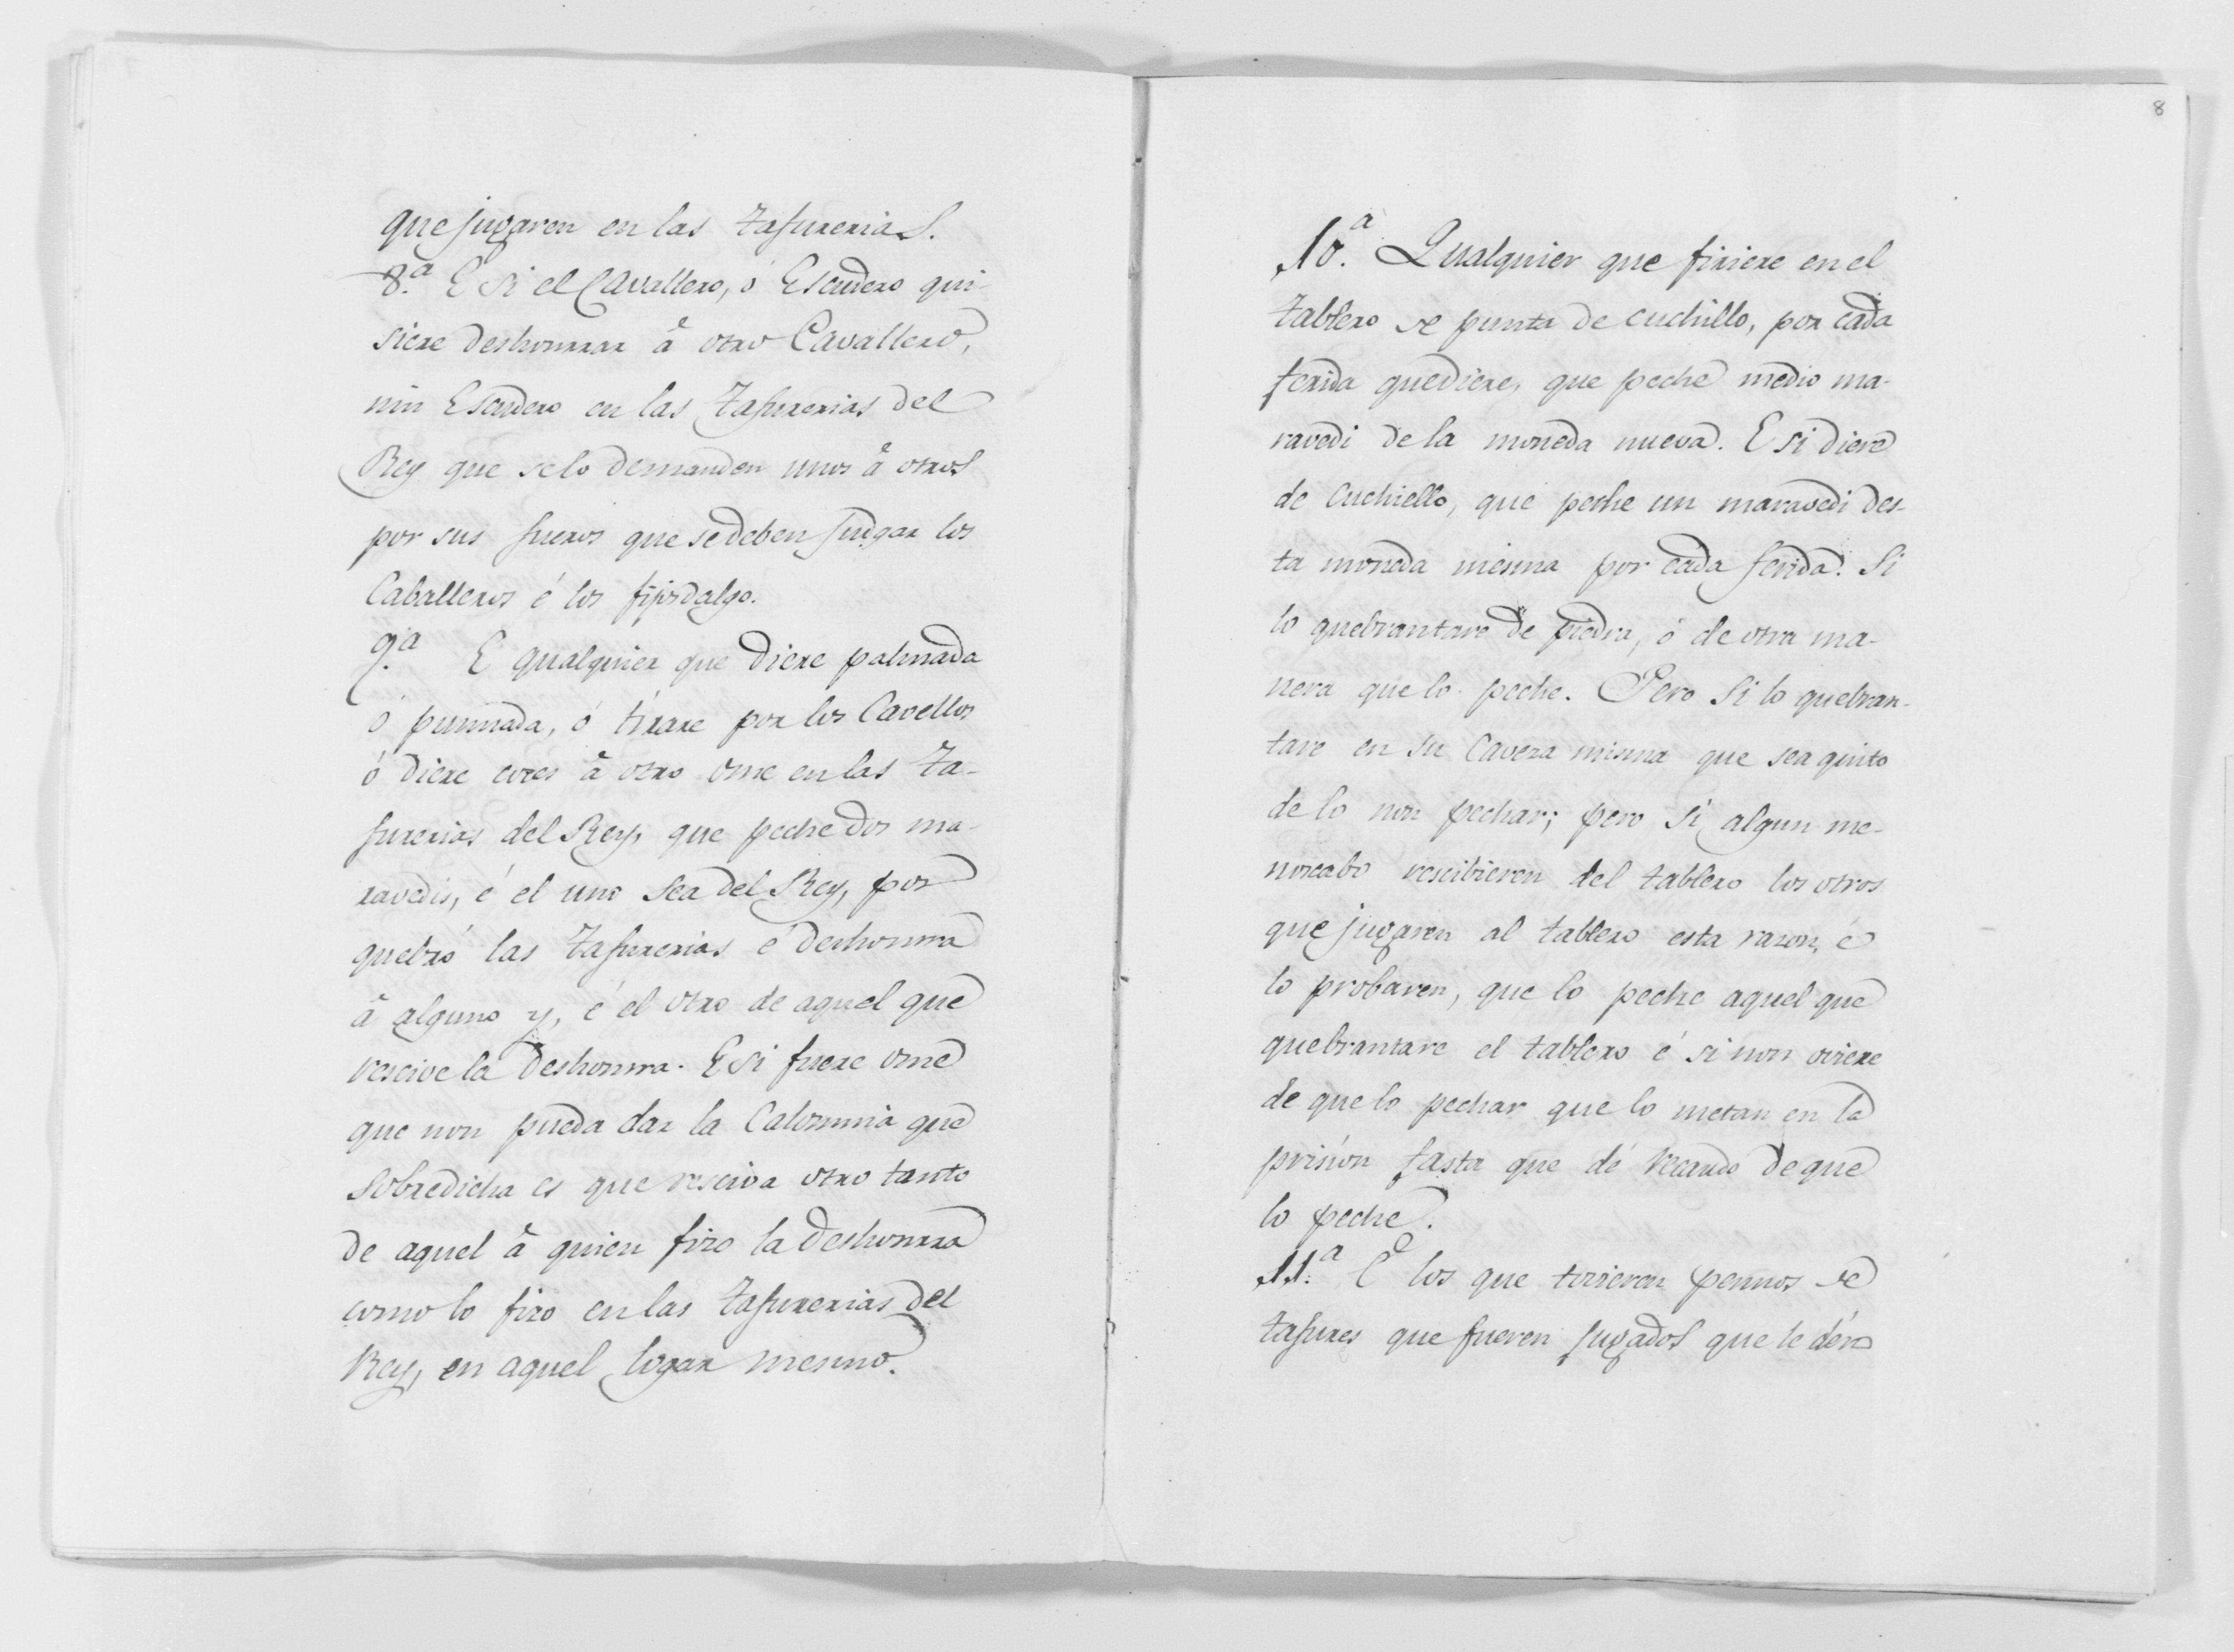 que jugaren en las tafurerias.
8.ª E si el Cavallero, ó Escudero qui-
siere deshonrrar â otro Cavallero,
nin Escudero en las Tafurerias del
Rey que se lo demanden unos â otros
por sus fueros que se deben judgar los
Caballeros é los fijosdalgo.
9.ª E qualquier que diere palmada
ó punnada, ó tirare por los Cavellos
ó diere coces â otro ome en las Ta-
furerias del Rey, que peche dos ma-
ravedis, é el uno sea del Rey, por
quebró las tafurerias é deshonrra
â alguno y, é el otro de aquel que
rescive la deshonrra. E si fuere ome
que non pueda dar la Calomnia que
sobredicha es que resciva otro tanto
de aquel â quien fizo la deshonrra
como lo fizo en las tafurerias del
Rey, en aquel logar mesmo.
8
10.ª Qualquier que firiere en el
tablero de punta de cuchillo, por cada
ferida que diere, que peche medio ma-
ravedi de la moneda nueva. E si diere
de cuchiello, que peche un maravedi des-
ta moneda mesma por cada ferida. Si
lo quebrantare de piedra, ó de otra ma-
nera que lo peche. Pero si lo quebran-
tare en su Caveza misma que sea quito
de lo non pechar; pero si algun me-
noscabo rescibieren del tablero los otros
que jugaren al tablero esta razon, é
lo probaren, que lo peche aquel que
quebrantare el tablero é si non oviere
de que lo pechar que lo metan en la
prisión fasta que dé recaudo de que
lo peche.
11.ª E los que tovieren pennos de
tafures que fueren jugados que le dén